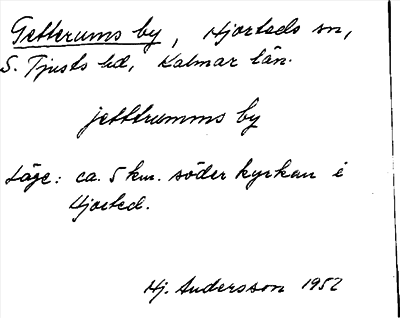 Getterums by, Hjorteds sn,
S. Tjusts hd, Kalmar län.
jetttrumms by
Läge: ca. 5 km. söder kyrkan i
Hjorted.
Hj. Andersson 1952